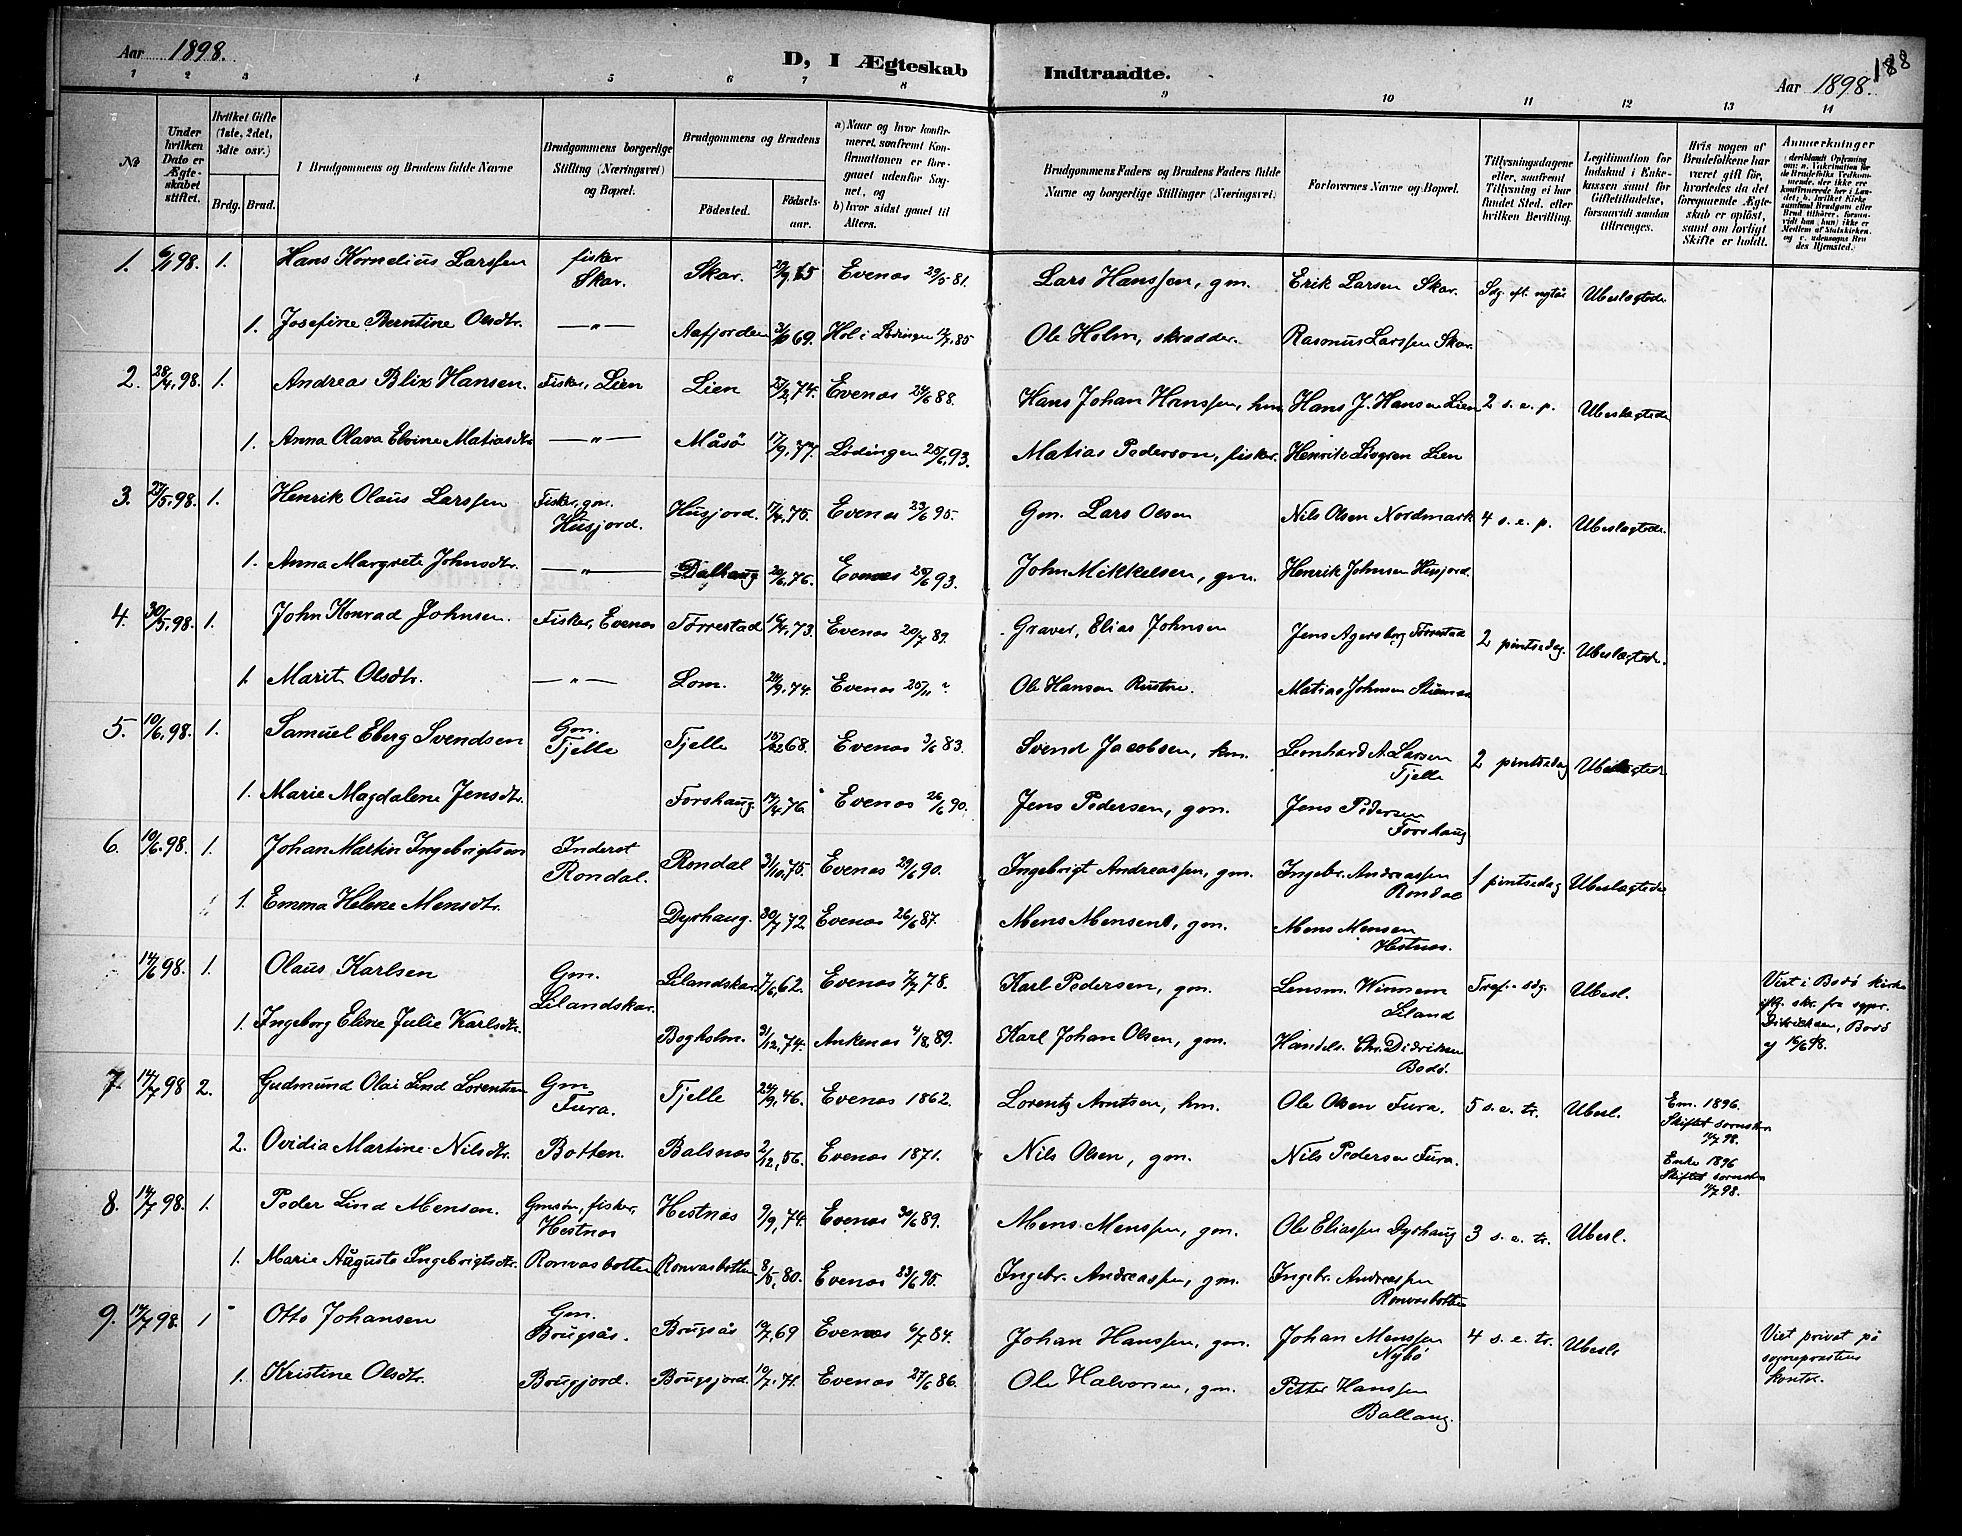 Aar 1898.
D, I Ægteskab
Indtraadte.
Aar 1898.
188
1 2 3 4 5 6 7 8 9 10 11 12 13 14
№
Under hvilken Dato er Ægteskabet stiftet.
Hvilket Gifte (1ste, 2det, 3die osv.)
Brdg. Brud.
Brudgommens og Brudens fulde Navne
Brudgommens borgerlige Stilling (Næringsvei) og Bopæl.
Brudgommens og Brudens
Fødested. Fødselsaar.
a) Naar og hvor konfirmeret, saafremt Konfirmationen er foregaaet udenfor Sognet, og
b) hvor sidst gaaet til Alters.
Brudgommens Faders og Brudens Faders fulde Navne og borgerlige Stillinger (Næringsvei)
Forlovernes Navne og Bopæl.
Tillysningsdagene eller, saafremt Tillysning ei har fundet Sted, efter hvilken Bevilling.
Legitimation for Indskud i Enkekassen samt for Giftetilladelse, forsaavidt saadan tiltrænges.
Hvis nogen af Brudefolkene har været gift før, hvorledes da det foregaaende Ægteskab er opløst, samt om lovligt Skifte er holdt.
Anmerkninger
1. 6/1 98. 1. Hans Kornelius Larssen fisker Skar. Skar. 65 Evenes 29/5 81. Lars Hanssen, gm. Erik Larsen Skar. Sdg. eft. nytår Ubeslægtede
1. Josefine Berntine Olsdtr. —"— Aafjorden 69. Hol i Lødingen 85 Ole Holm, skrædder. Rasmus Larssen Skar.
2. 28/4 98. 1. Andreas Blix Hansen. Fisker, Lien Lien 27/2 74. Evenes 24/6 88. Hans Johan Hanssen, hm. Hans J. Hansen Lien 2 s. e. p. Ubeslægtede
1. Anna Olava Elvine Matiasdtr —"— Måsø 17/9 77. Lødingen 25/6 93. Matias Pederson, fisker. Henrik Livgren Lien
3. 27/5 98. 1. Henrik Olaus Larssen Fisker, gm. Husjord. Husjord. 17/4 75. Evenes 23/6 95. Gm. Lars Olsen Nils Olsen Nordmark 4 s. e. p. Ubeslægtede
1. Anna Margrete Johnsdtr. —"— Dalhaug 20/6 76. Evenes 93. John Mikkelsen, gm. Henrik Johnsen Husjord.
4. 30/5 98. 1. John Konrad Johnsen. Fisker, Evenes Tørrestad 73. Evenes 20/7 89. Graver, Elias Johnsen Jens Agersborg Tørrestad 2 pintsedag. Ubeslægtede.
1. Marit Olsdtr. —"— Lom. 24/9 74. Evenes 25/11 " Ole Hansen Matias Johnsen
5. 10/6 98. 1. Samuel Eberg Svendsen Gm. Tjelle Tjelle 68. Evenes 3/6 83. Svend Jacobsen, hm. Leonhard A. Larsen Tjelle 2 pintsedag Ubeslægtede
1. Marie Magdalene Jensdtr. Forshaug. 14/4 76. Evenes 26/6 90. Jens Pedersen, gm. Jens Pedersen Forshaug
6. 10/6 98. 1. Johan Martin Ingebrigtsen Inderst Rondal. Rondal 31/10 75. Evenes 29/6 90. Ingebrigt Andreassen, gm. Ingebr. Andreassen Rondal 1 pintsedag Ubeslægtede
1. Emma Helene Mensdtr. Dyrhaug. 30/7 72 Evenes 26/6 87. Mens Mensen, gm. Mens Mensen Hestnes.
14/6 98. 1. Olaus Karlsen Gm. Lilandskar. Lilandskar. 7/6 62. Evenes 7/7 78. Karl Pedersen, gm. Lensm. Winnem Liland Tref. sdg. Ubesl. Viet i Bodø kirke iflg. skr. fra sgpr. Didriksen, Bodø af 16/6 98.
1. Ingeborg Eline Julie Karlsdtr. Bogholm. 31/12 74. Ankenes 4/8 89. Karl Johan Olsen, gm. Handels. Chr. Didriksen Bodø.
7. 14/7 98 2. Gudmund Olai Lind Lorentsen Gm Fura. Tjelle 24/9 46. Evenes 1862. Lorentz Arntsen, hm. Ole Olsen Fura. 5 s. e. tr. Ubesl. Em. 1896. Skiftet sornskr. 98.
2. Ovidia Martine Nilsdtr. Botten. Balsnes 2/12 56. Evenes 1871. Nils Olsen, gm. Nils Pedersen Fura. Enke 1896 Skiftet sornskr. 98.
8. 14/7 98. 1. Peder Lind Mensen. Gmsøn, fisker, Hestnes Hestnes 9/9 74. Evenes 30/6 89. Mens Menssen, gm. Ole Eliassen Dyrhaug 3 s. e. tr. Ubesl.
1. Marie Augusta Ingebrigtsdtr. Ronvasbotten Ronvasbotten 8/5 80. Evenes 23/6 95. Ingebr. Andreassen, gm. Ingebr. Andreassen Ronvasbotten
9. 17/7 98. 1 Otto Johansen Gm. Brugsås. Brugsås 69 Evenes 6/7 84. Johan Hanssen, gm. Johan Menssen Nybø 4 s. e. tr. Ubesl. Viet privat på sognepræstens kontor.
1. Kristine Olsdtr. Brugjord. Brugsjord. 10/7 71. Evenes 27/6 86. Ole Halvorsen, gm. Petter Hanssen Ballang.